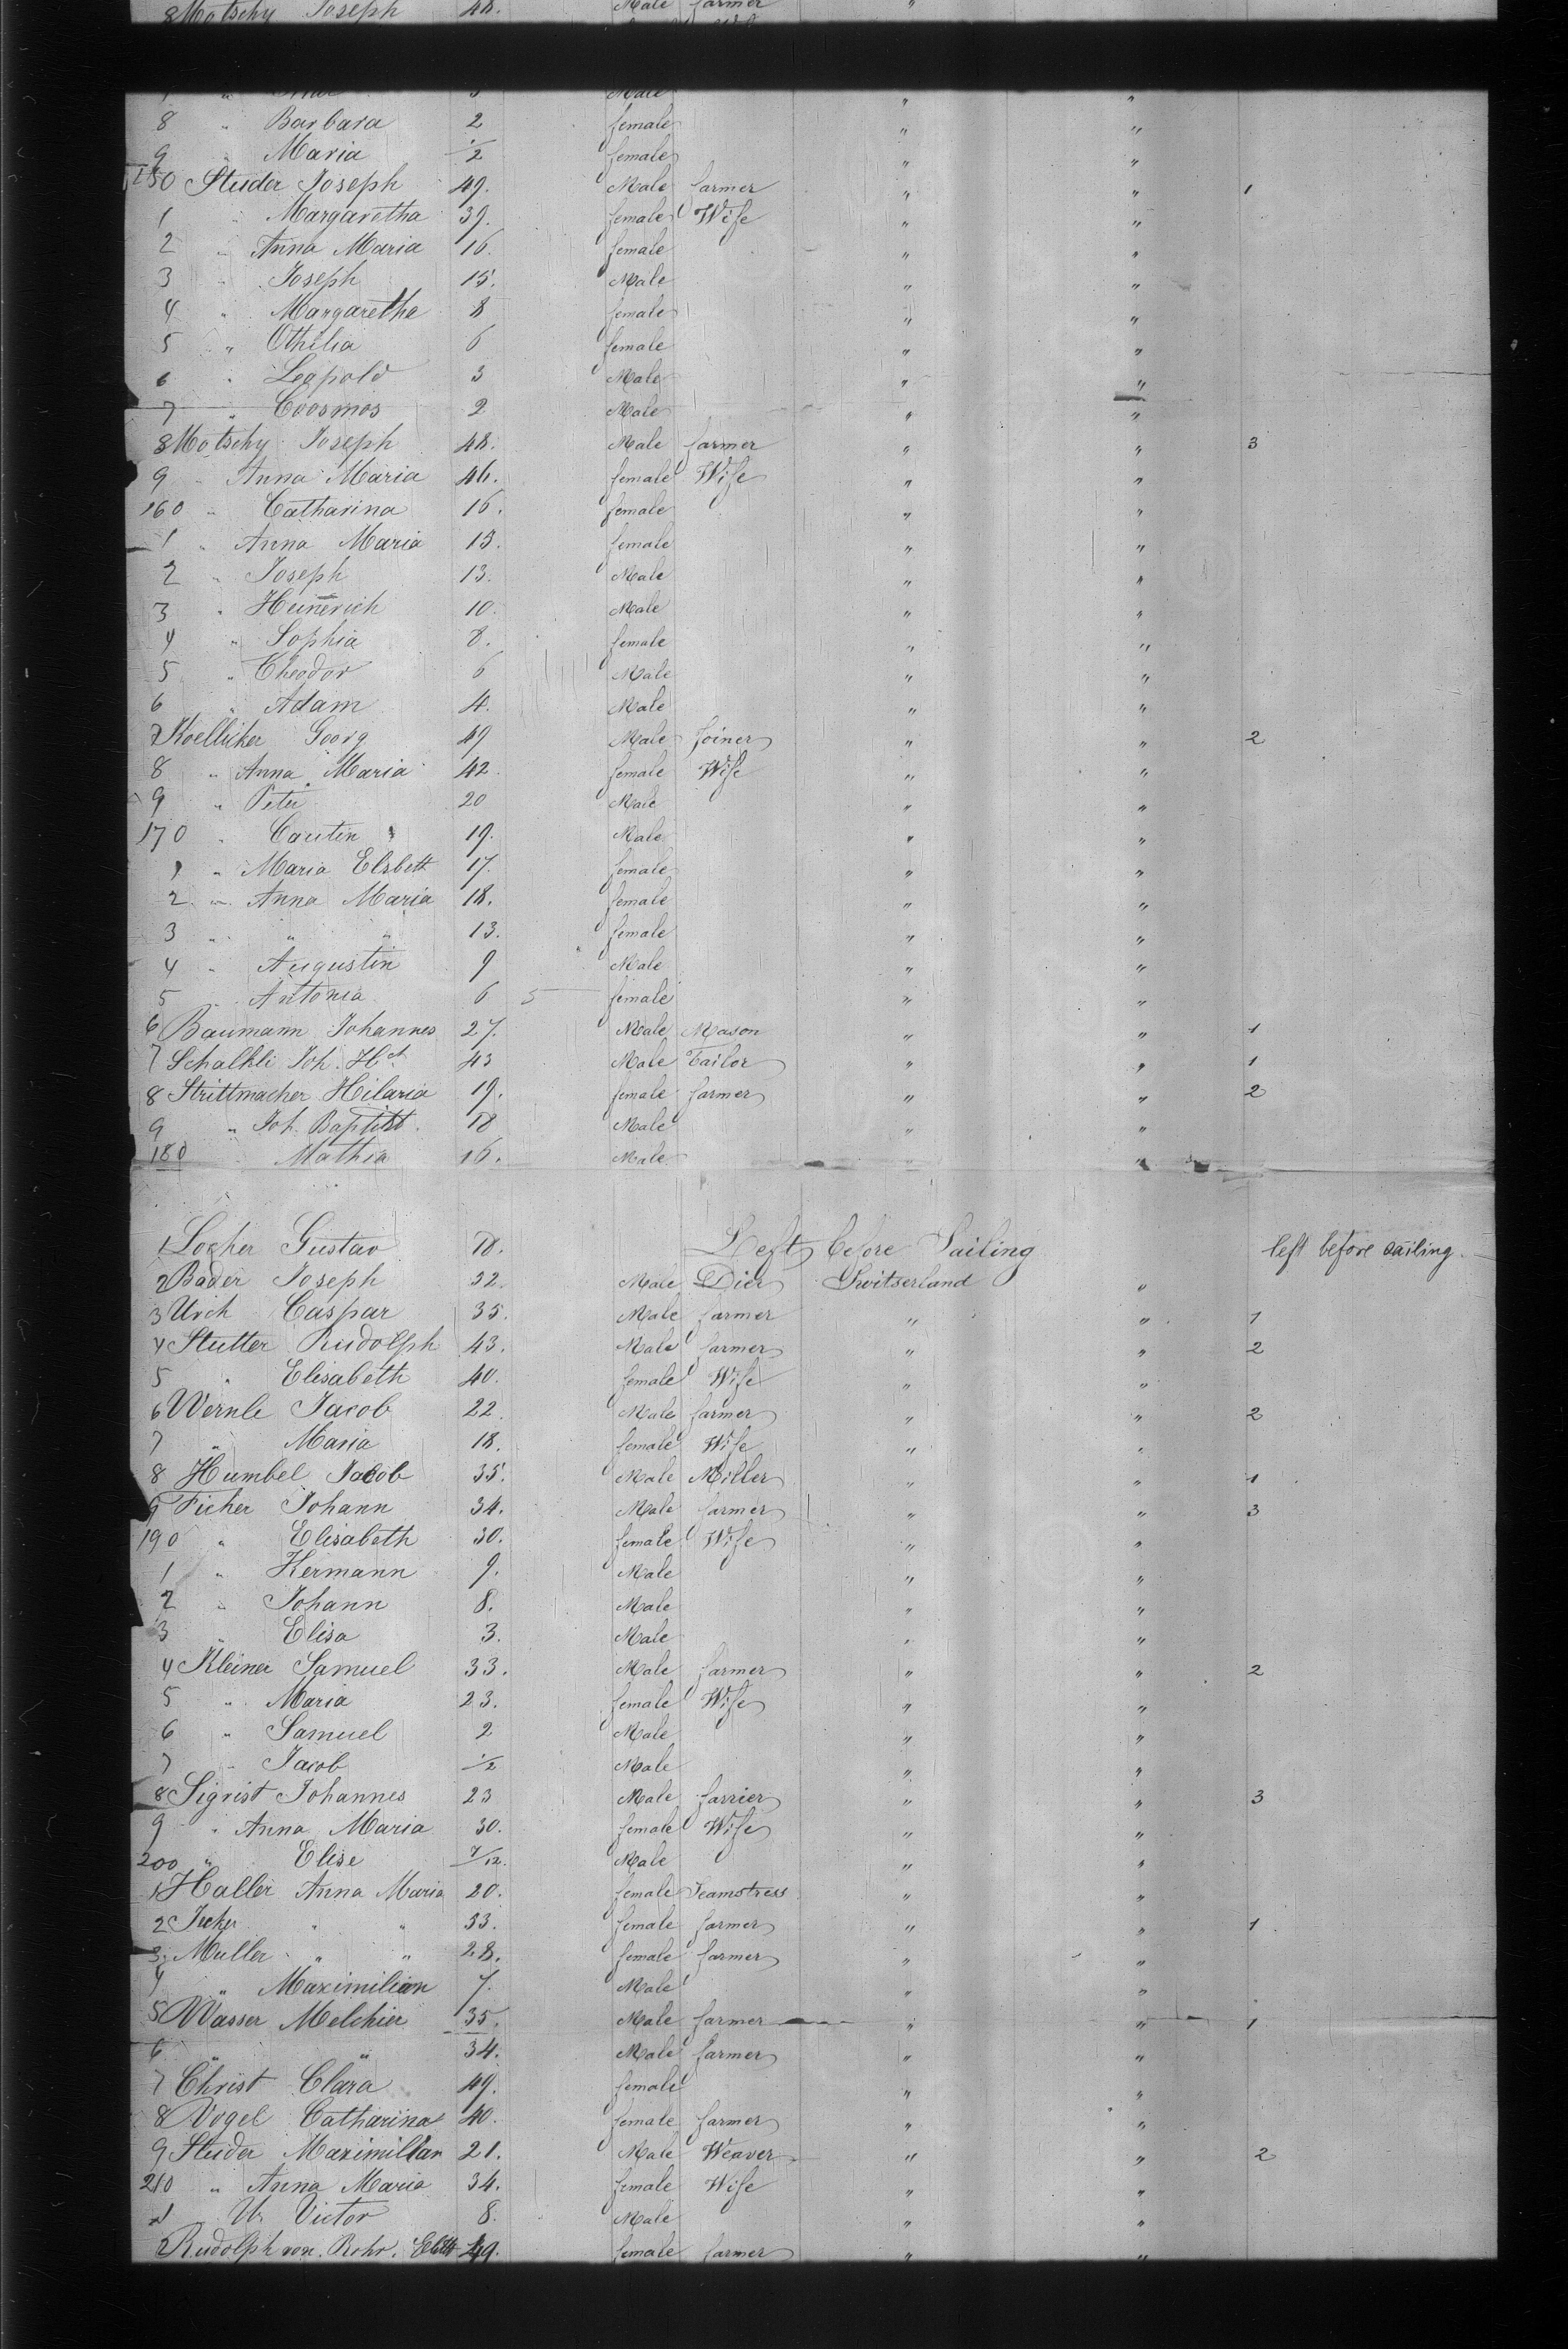 8 Motschy Joseph 48. Male farmer "
8 " Barbara 2 female " "
9 " Maria 1/2 female " "
150 Studer Joseph 49. Male farmer " " 1
1 " Margaretha 39. female Wife " "
2 " Anna Maria 16. female " "
3 " Joseph 15. Male " "
4 " Margaretha 8 female " "
5 " Othilia 6 female " "
6 " Leopold 3 Male " "
7 " Coosmos 2 Male " "
8 Motschy Joseph 48. Male farmer " " 3
9 " Anna Maria 46. female Wife " "
160 " Catharina 16. female " "
1 " Anna Maria 13. female " "
2 " Joseph 13. Male " "
3 " Heinerich 10. Male " "
4 " Sophia 8. female " "
5 " Theodor 6 Male " "
6 " Adam 4. Male " "
7 Koelliker Georg 49 Male Joiner " " 2
8 " Anna Maria 42. female Wife " "
9 " Peter 20 Male " "
170 " 19. Male " "
1 " Maria Elsbett 17. female " "
2 " Anna Maria 18. female " "
3 " " " 13. female " "
4 " Augustin 9 Male " "
5 " Antonia 6 5 female " "
6 Baumann Johannes 27. Male Mason " " 1
7 Schalkli Joh. Hch 43 Male Tailor " " 1
8 Strittmacher Hilaria 19. female farmer " " 2
9 " Joh. Baptist. 18 Male " "
180 Mathia 16. Male " "
1 Locher Gustav 18. Left before Sailing left before sailing.
2 Bader Joseph 32. Male Dier Switserland "
3 Urch Caspar 35. Male farmer " " 1
4 Stutter Rudolph 43. Male farmer " " 2
5 " Elisabeth 40. female Wife " "
6 Wernle Jacob 22. Male farmer " " 2
7 " Maria 18. female Wife " "
8 Humbel Jacob 35. Male Miller " " 1
9 Ficher Johann 34. Male farmer " " 3
190 " Elisabeth 30. female Wife " "
1 " Hermann 9. Male " "
2 " Johann 8. Male " "
3 " Elisa 3. Male " "
4 Kleiner Samuel 33. Male farmer " " 2
5 " Maria 23. female Wife " "
6 " Samuel 2 Male " "
7 " Jacob 1/2 Male " "
8 Sigrist Johannes 23 Male farrier " " 3
9 " Anna Maria 30. female Wife " "
200 " Elise 7/12. Male " "
1 Haller Anna Maria 20. female Seamstress " "
2 Jecker " " 33. female farmer " " 1
3 Muller " " 28. female farmer " "
4 " Maximilian 7. Male " "
5 Wasser Melchier 35. Male farmer " " 1
6 " " 34. Male farmer " "
7 Christ Clara 49. female " "
8 Vogel Catharina 40. female farmer " "
9 Studer Maximilian 21. Male Weaver " " 2
210 " Anna Maria 34. female Wife " "
1 U. Victor 8. Male " "
2 Rudolph von Rohr. Elbth 49. female farmer " "